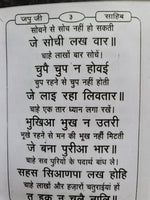 जपु जी ३ साहिब
सोचने से सोच नहीं हो सकती
जे सोची लख वार॥
चाहे लाखों बार सोचे।
चुपै चुप न होवई
चुप रहने से चुप नहीं होती
जे लाइ रहा लिवतार॥
चाहे एक तार ध्यान लगा रखे।
भुखिआ भुख न उतरी
भूखे रहने से मन की भूख नहीं मिटती
जे बंना पुरीआ भार॥
चाहे सब पुरियों के पदार्थ बांध ले।
सहस सिआणपा लख होहि
चाहे लाखों और हज़ारों चतुराईयां हो
त इक न चले नालि॥